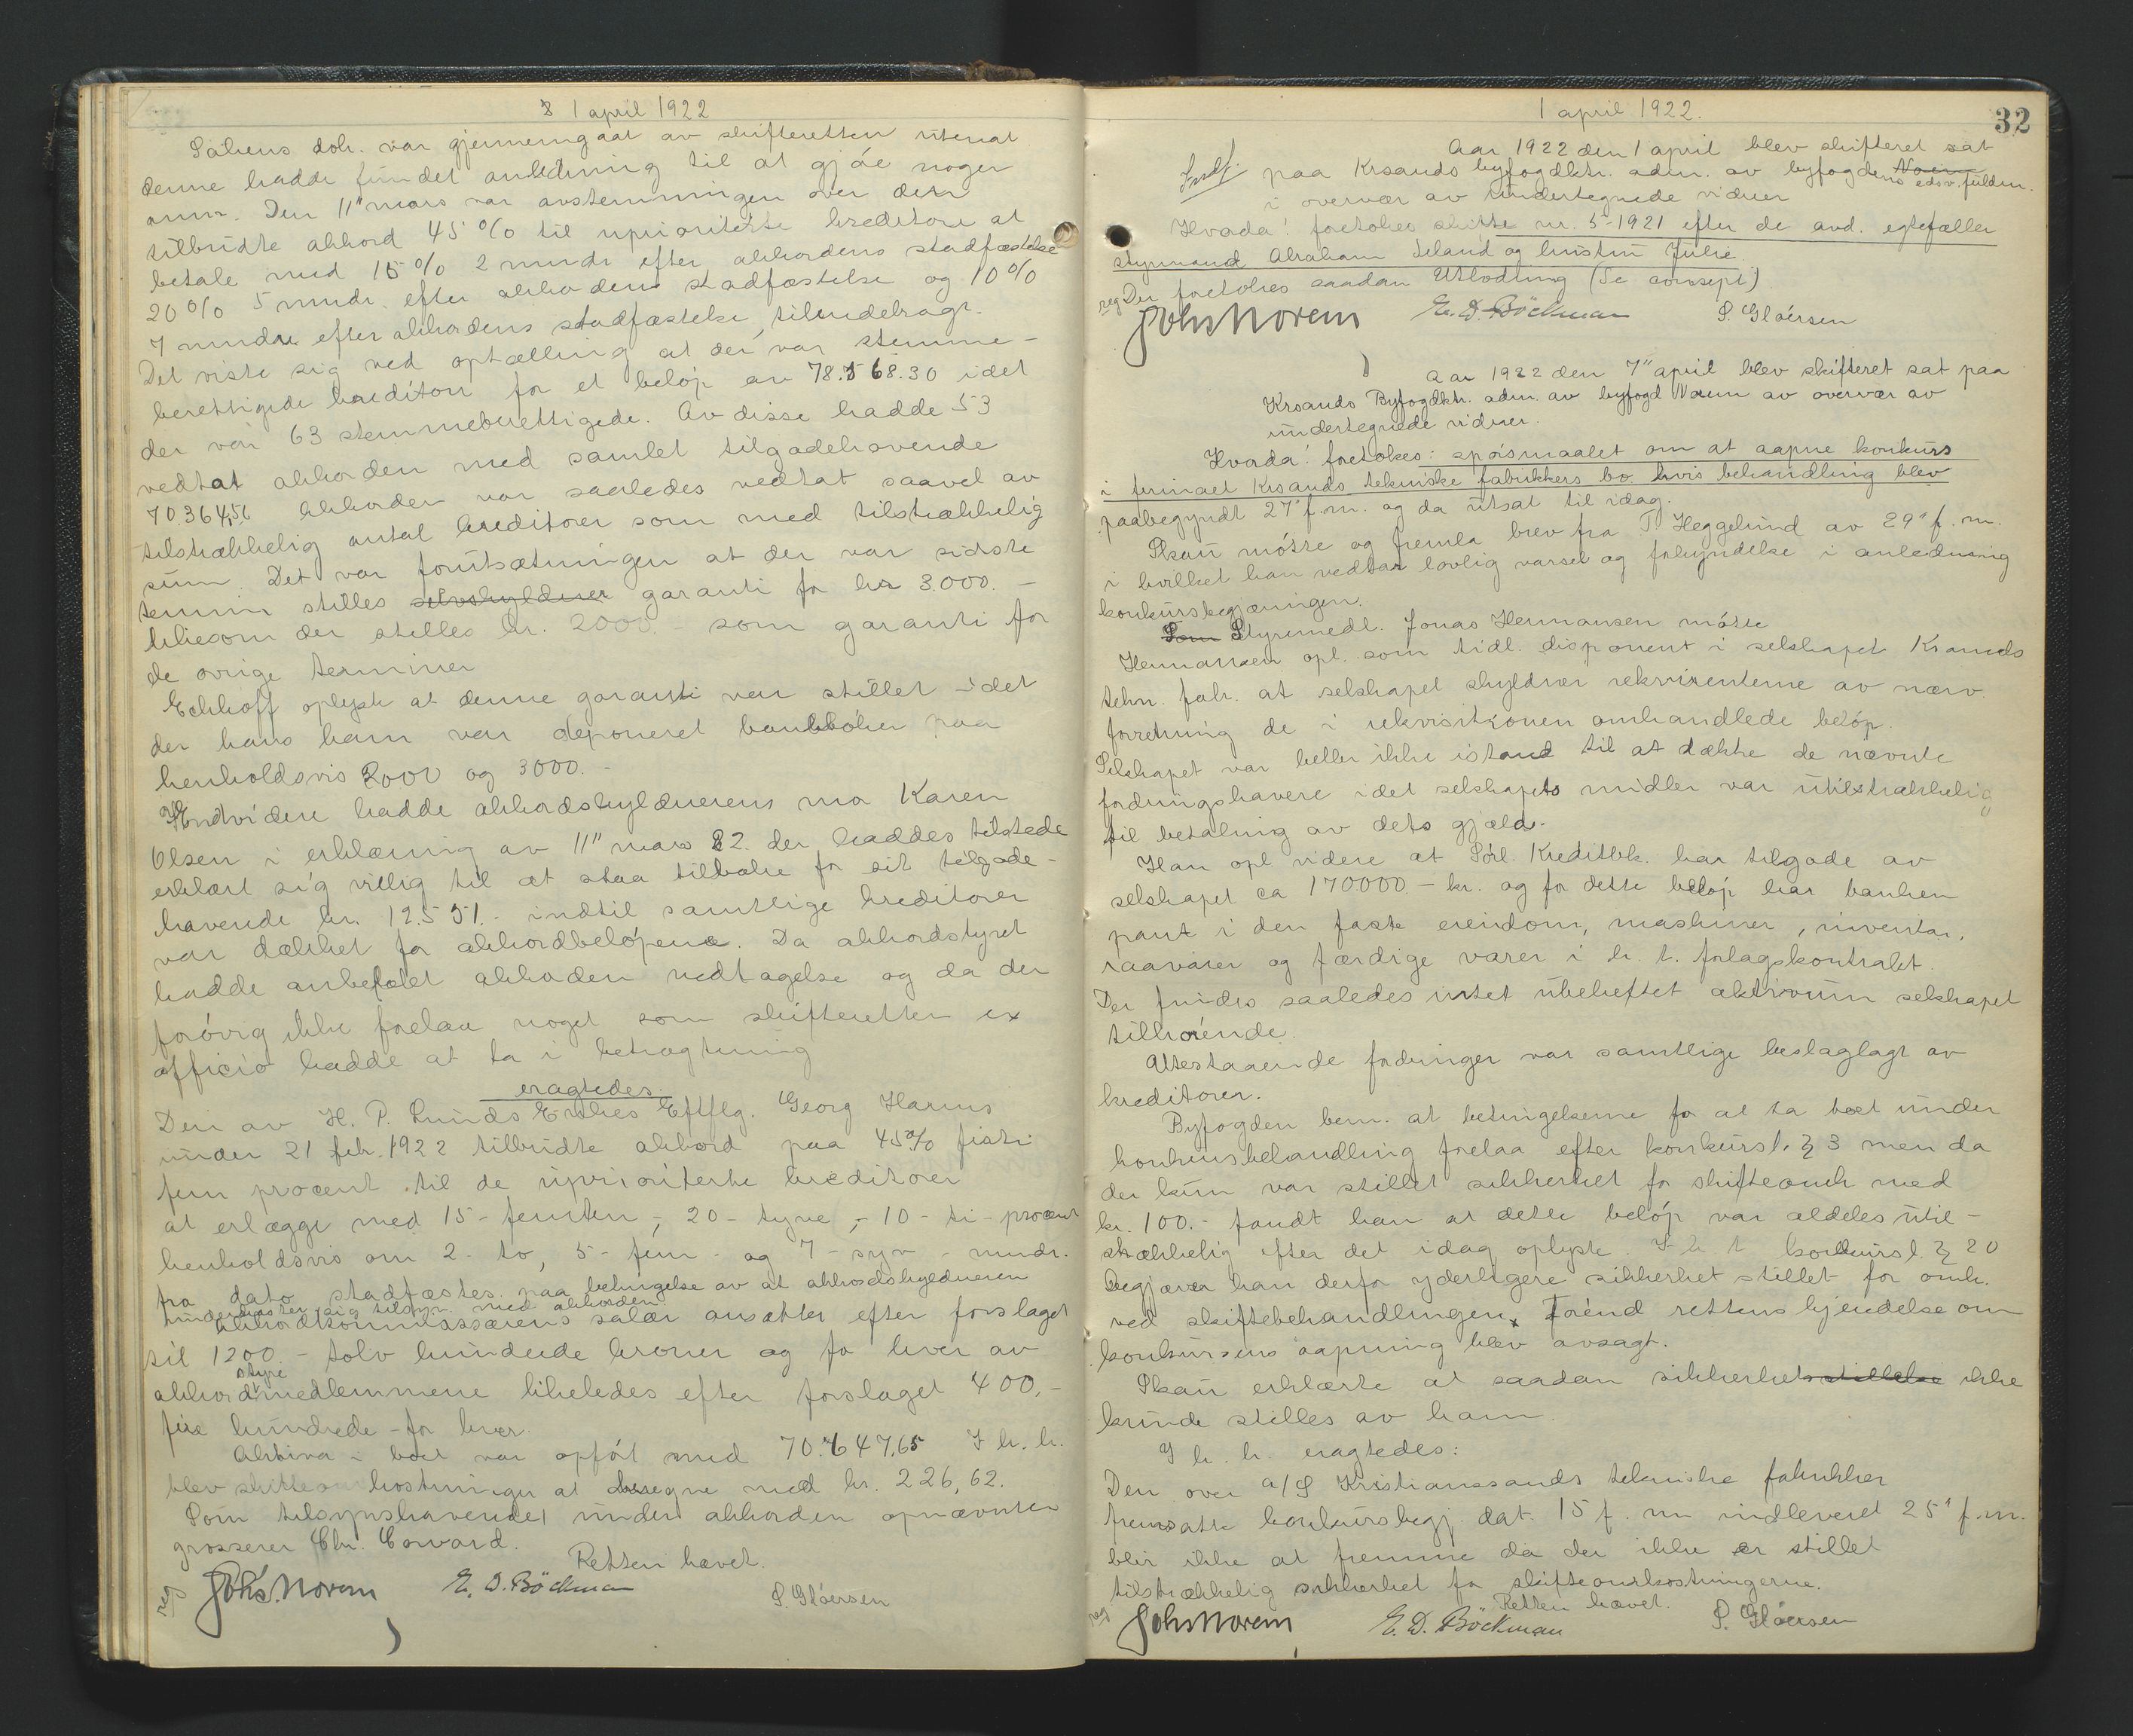 1 april 1922
Sakens dok. var gjennemgaat av skifteretten utenat
denne hadde fundet anledning til at gjöe nogen
anm. Den 11" mars var avstemningen over den
tilbudte akkord 45 % til uprioriterte kreditorer at
betale med 15 % 2 mndr efter akkordens stadfæstelse
20 % 5 mndr. efter akkordens stadfæstelse og 10 %
7 mndr efter akkordens stadfæstelse, tilendebragt.
Det viste sig ved optælling at der var stemme-
berettigede kreditorer for et belöp av 78.568.30 idet
der var 63 stemmeberettigede. Av disse hadde 53
vedtat akkorden med samlet tilgodehavende
70.364,56 Akkorden var saaledes vedtat saavel av
tilstrækkelig antal kreditorer som med tilstrækkelig
sum. Det var forutsætningen at der var sidste
termin stilles selvskyldner garanti for kr 3000.-
likesom der stilles kr. 2000.- som garanti for
de övrige terminer
Eckhoff oplyste at denne garanti var stillet idet
der hans ham var deponeret bankböker paa
henholdsvis 2000 og 3000.-
Endvidere hadde akkordskyldnerens mor Karen
Olsen i erklæring av 11" mars 22. der haddes tilstede
erklært sig villig til at staa tilbake for sit tilgode-
havende kr. 12.551.- indtil samtlige kreditorer
var dækket for akkordbelöpene. Da akkordstyret
hadde anbefalet akkorden vedtagelse og da der
forövrig ikke forelaa noget som skifteretten ex
officio hadde at ta i betragtning
eragtedes.
Den av H. P. Lunds Enkes Eftflg. Georg Harms
under 21 feb. 1922 tilbudte akkord paa 45 % firti
fem procent til de uprioriterte kreditorer
at erlægge med 15 - femten -, 20 - tyve, - 10 - ti - procent
henholdsvis om 2 - to, 5 - fem - og 7 - syv - mndr.
fra dato stadfæstes paa betingelse av at akkordskyldneren
underkaster sig tilsyn med akkorden
Akkordkommissærens salær ansættes efter forslaget
til 1200.- tolv hundrede kroner og for hver av
akkordstyremedlemmene likeledes efter forslaget 400.-
fire hundrede - for hver.
Aktiva i boet var opfört med 70.647,65 I h. h.
blev skifteomkostninger at beregne med kr. 226,62.
Som tilsynshavende under akkorden opnævntes
grosserer Chr. Corvard.
Retten hævet.
reg
Johs. Norem E. D. Böckman S. Glöersen
1 april 1922.
32
Aar 1922 den 1 april blev skifteret sat
paa Krsands byfogdktr. adm. av byfogdens Norem edsv. fuldm.
i overvær av undertegnede vidner
Hvorda! foretokes skifte nr. 5-1921 efter de avd. egtefæller
styrmand Abraham Seland og hustru Julie.
Der foretokes saadan Utlodning (Se concept)
reg
Johs Norem E. D. Böckman S. Glöersen
Aar 1922 den 7" april blev skifteret sat paa
Krsands Byfogdktr. adm. av byfogd Norem av overvær av
undertegnede vidner.
Hvorda! foretokes: spörsmaalet om at aapne konkurs
i firmaet Krsands tekniske fabrikkers bo hvis behandling blev
paabegyndt 27" f.m. og da utsat til idag.
Skau mötte og fremla brev fra T. Heggelund av 29" f.m.
i hvilket han vedtar lovlig varsel og forkyndelse i anledning
konkursbegjæringen.
Som Styremedl. Jonas Hermansen mötte
Hermansen opl. som tidl. disponent i selskapet Krsands
tekn. fabr. at selskapet skyldner rekvirenterne av nærv.
forretning de i rekvisitionen omhandlede belöp.
Selskapet var heller ikke istand til at dække de nævnte
fordringshavere idet selskapets midler var utilstrækkelig
til betaling av dets gjæld.
Han opl videre at Sörl. Kreditbk. har tilgode av
selskapet ca 170000.- kr. og for dette belöp har banken
pant i den faste eiendom, maskiner, inventar,
raavarer og færdige varer i h. t. forlagskontrakt.
Der findes saaledes intet ubeheftet aktivum selskapet
tilhörende.
Utestaaende fordringer var samtlige beslaglagt av
kreditorer.
Byfogden bem. at betingelserne for at ta boet under
konkursbehandling forelaa efter konkursl. § 3 men da
der kun var stillet sikkerhet for skifteomk med
kr. 100.- fandt han at dette belöp var aldeles util-
strækkelig efter det idag oplyste. I h t konkursl. § 20
begjærer han derfor yderligere sikkerhet stillet for omk.
ved skiftebehandlingen, forend rettens kjendelse om
konkursens aapning blev avsagt.
Skau erklærte at saadan sikkerhetsstillelse ikke
kunde stilles av ham.
I h. h. eragtedes:
Den over a/S Kristianssands tekniske fabrikker
fremsatte konkursbegj. dat. 15 f. m indleveret 25" f.m.
blir ikke at fremme da der ikke er stillet
tilstrækkelig sikkerhet for skifteomkostningerne.
Retten hævet.
reg
Johs Norem E. D. Böckman S. Glöersen